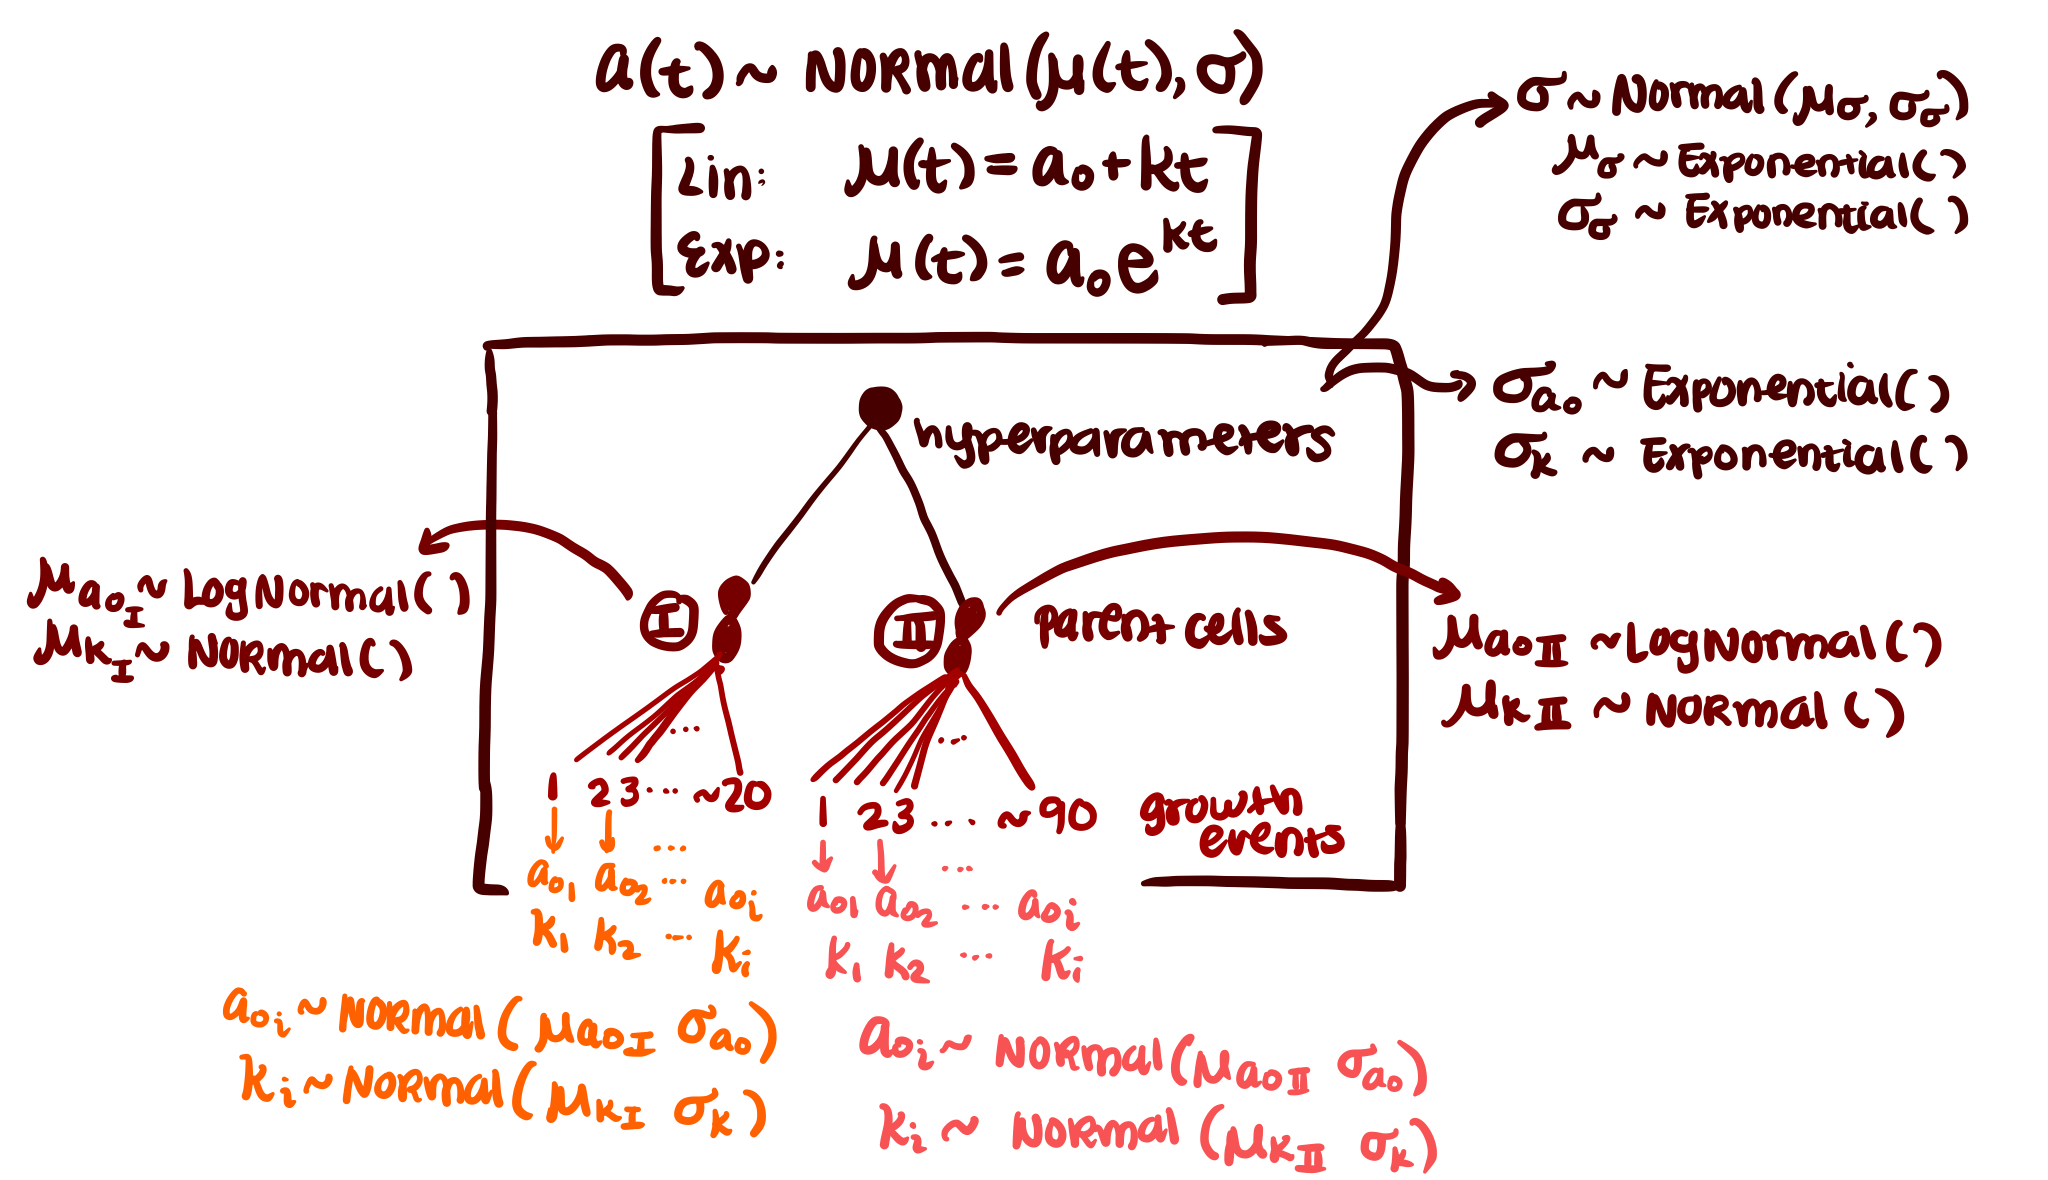 a(t) ~ Normal(μ(t), σ)
Lin: μ(t) = a₀ + kt
Exp: μ(t) = a₀e^kt
σ ~ Normal(μ_σ, σ_σ)
μ_σ ~ Exponential()
σ_σ ~ Exponential()
σ_a₀ ~ Exponential()
σ_k ~ Exponential()
hyperparameters
μ_a₀_I ~ LogNormal()
μ_k_I ~ Normal()
I
II
parent cells
μ_a₀_II ~ LogNormal()
μ_k_II ~ Normal()
...
...
1 2 3 ... ~20
1 2 3 ... ~90
growth
events
...
a₀₁ a₀₂ ... a₀ᵢ
k₁ k₂ ... kᵢ
...
a₀₁ a₀₂ ... a₀ᵢ
k₁ k₂ ... kᵢ
a₀ᵢ ~ Normal(μ_a₀_I σ_a₀)
kᵢ ~ Normal(μ_k_I σ_k)
a₀ᵢ ~ Normal(μ_a₀_II σ_a₀)
kᵢ ~ Normal(μ_k_II σ_k)